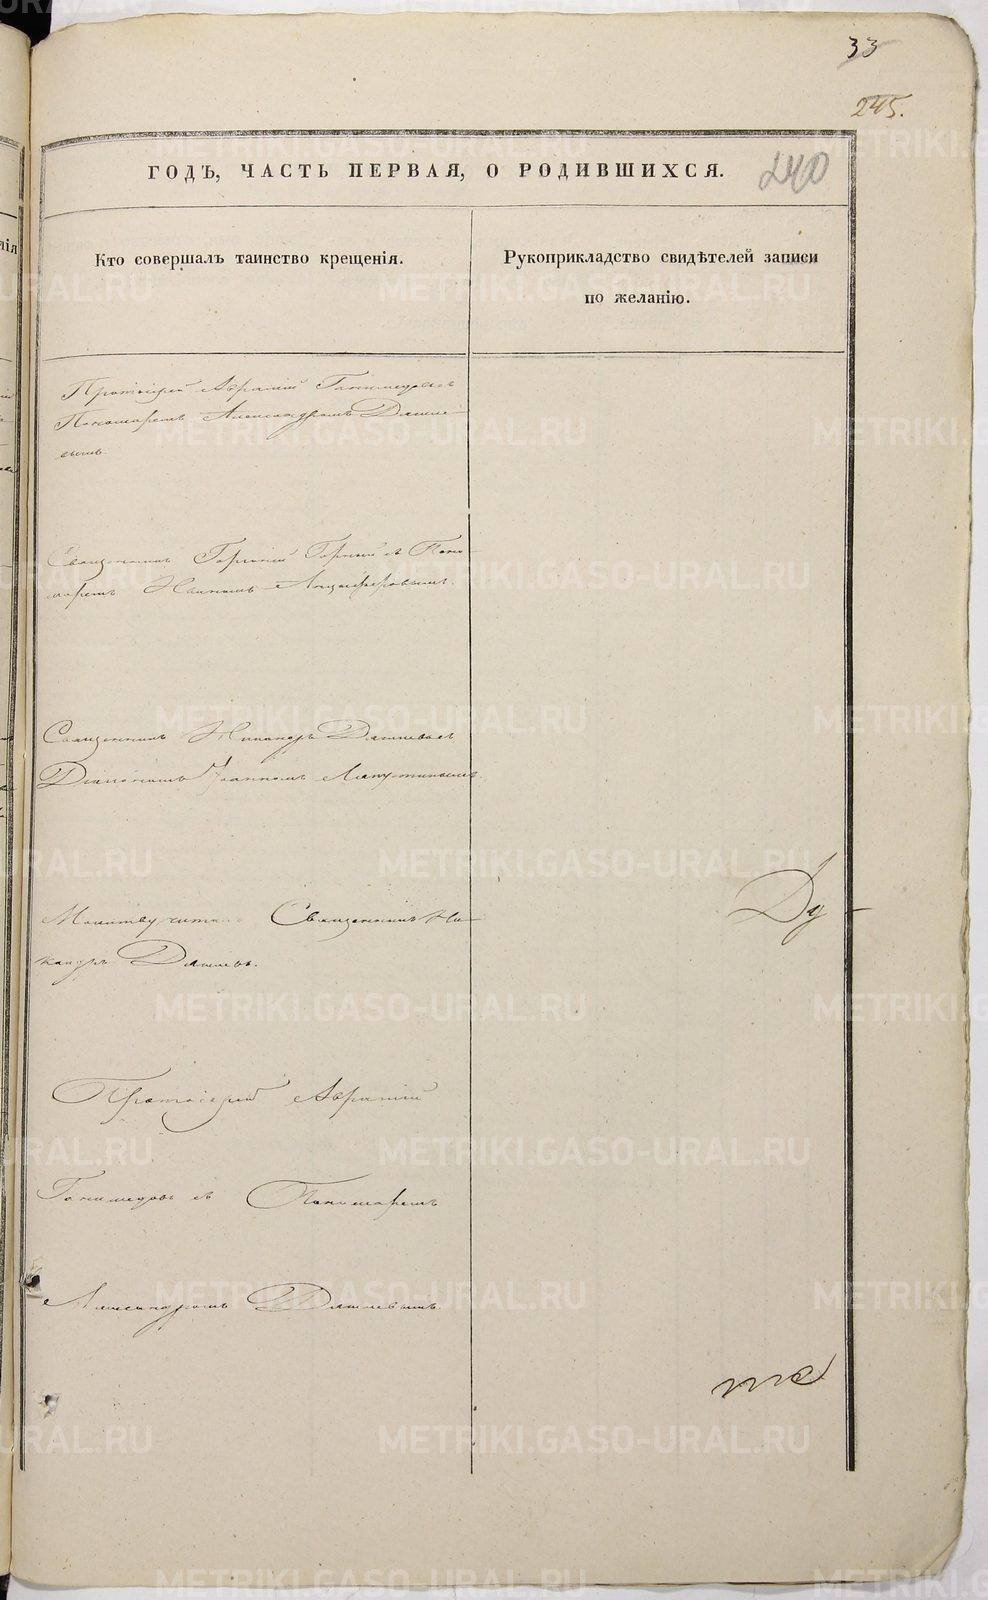 33
245.
240
ГОДЪ, ЧАСТЬ ПЕРВАЯ, О РОДИВШИХСЯ.
Кто совершалъ таинство крещенія.
Рукоприкладство свидѣтелей записи
по желанію.
Протоіерей Авраамій Ганимедовъ съ
Пономаремъ Александромъ Дягиле-
вымъ.
Священникъ Горный съ Поно-
маремъ Анциферовымъ.
Священникъ Никаноръ Дягилевъ съ
Діакономъ Іоанномъ Лапутинымъ
Молитву читалъ Священникъ Ни-
каноръ Дягилевъ.
Ду-
Протоіерей Авраамій
Ганимедовъ съ Пономаремъ
Александромъ Дягилевымъ.
METRIKI.GASO-URAL.RU